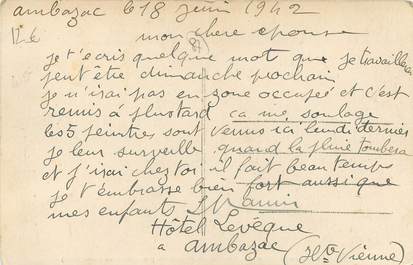 ambazac le 18 juin 1942
mon chere epouse
je t'ecris quelque mot que je travaillerai
peut être dimanche prochain
je n'irai pas en zone occupé et c'est
remis à plustard ça me soulage
les peintres sont venus ici lundi dernier
je leur surveille quand la pluie tombera
et j'irai chez toi il fait beau temp
je t'embrasse bien fort aussi que
mes enfants
Hôtel Levêque
a ambazac (Hte Vienne)